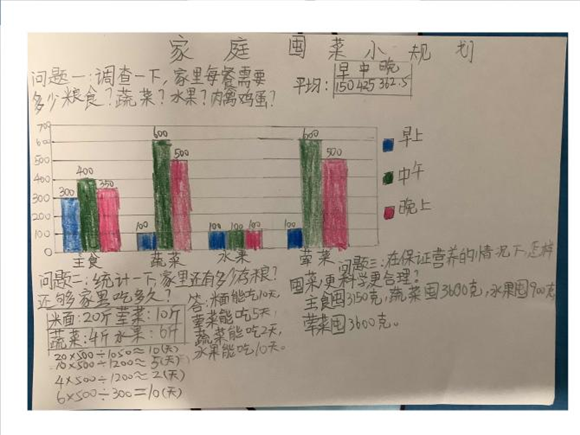 家庭囤菜小规划
问题一:调查一下,家里每餐需要
多少粮食?蔬菜?水果?肉禽鸡蛋?
早 中 晚
平均: 150 425 362.5
700
600
500
400
300
200
100
0
300 400 350
100 600 500
100 100 100
100 600 500
主食 蔬菜 水果 荤菜
早上
中午
晚上
问题二:统计一下,家里还有多少存粮?
还够家里吃多久?
米面:20斤 荤菜:10斤
蔬菜:4斤 水果:6斤
20×500÷1050≈10(天)
10×500÷1200≈5(天)
4×500÷1200≈2(天)
6×500÷300=10(天)
答:米面能吃10天,
荤菜能吃5天,
蔬菜能吃2天,
水果能吃10天。
问题三:在保证营养的情况下,怎样
囤菜更科学更合理?
主食囤3150克,蔬菜囤3600克,水果囤900克,
荤菜囤3600克。